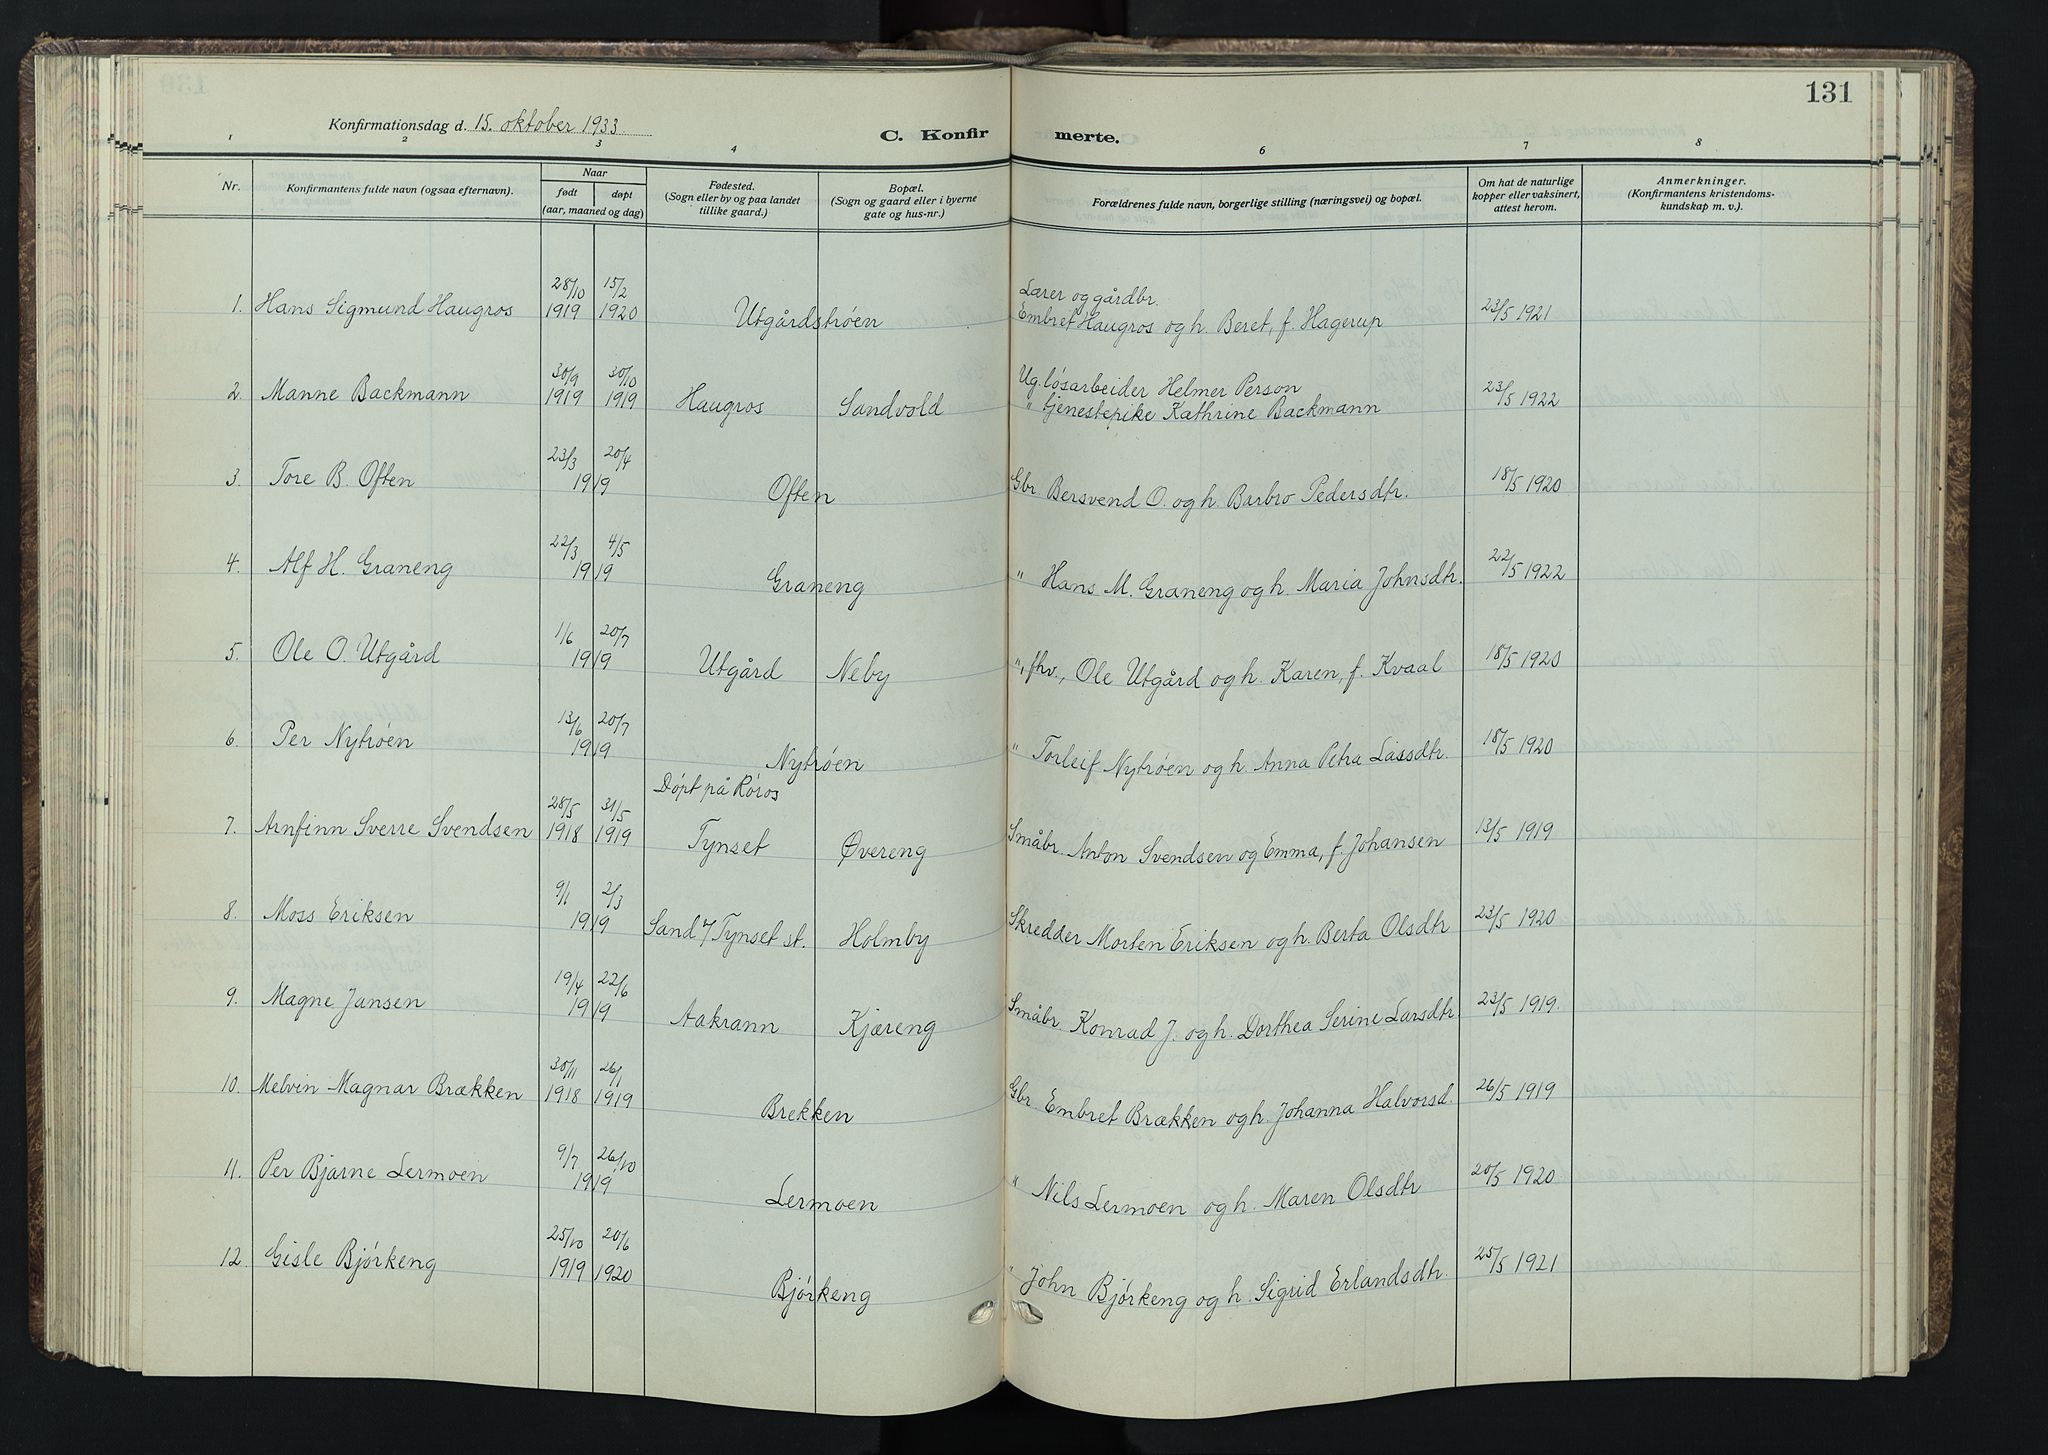 131
Konfirmationsdag d. 15. oktober 1933.
C. Konfirmerte.
1 2 3 4 6 7 8
Nr.
Konfirmantens fulde navn (ogsaa efternavn).
Naar
født døpt
(aar, maaned og dag)
Fødested.
(Sogn eller by og paa landet
tillike gaard.)
Bopæl.
(Sogn og gaard eller i byerne
gate og hus-nr.)
Forældrenes fulde navn, borgerlige stilling (næringsvei) og bopæl.
Om hat de naturlige
kopper eller vaksinert,
attest herom.
Anmerkninger.
(Konfirmantens kristendoms-
kundskap m. v.).
28/10 15/2 Lærer og gårdbr.
1. Hans Sigmund Haugros 1919 1920 Utgårdstrøen Embret Haugros og h. Beret, f. Hagerup 23/5 1921
30/9 30/10 Ug. løsarbeider Helmer Person
2. Manne Backmann 1919 1919 Haugros Sandvold " tjenestepike Kathrine Backmann 23/5 1922
23/3 20/4
3. Tore B. Often 1919 Often Gbr. Bersvend O. og h. Barbro Pedersdtr. 18/5 1920
22/3 4/5
4. Alf H. Graneng 1919 Graneng " Hans M. Graneng og h. Maria Johnsdtr. 22/5 1922
1/6 20/7
5. Ole O. Utgård 1919 Utgård Neby ", fhv., Ole Utgård og h. Karen, f. Kvaal 18/5 1920
13/6 20/7
6. Per Nytrøen 1919 Nytrøen " Torleif Nytrøen og h. Anna Petra Lassdtr. 18/5 1920
28/5 31/5 Døpt på Røros
7. Arnfinn Sverre Svendsen 1918 1919 Tynset Øvereng Småbr. Anton Svendsen og Emma, f. Johansen 13/5 1919
9/1 2/3
8. Moss Eriksen 1919 Sand 7/ Tynset st. Holmby Skredder Morten Eriksen og h. Berta Olsdtr 23/5 1920
19/4 22/6
9. Magne Jansen 1919 Aakrann Kjæreng Småbr. Konrad J. og h. Dorthea Serine Larsdtr. 23/5 1919.
30/11 26/1
10. Melvin Magnar Brækken 1918 1919 Brekken Gbr. Embret Brækken og h. Johanna Halvorsd. 26/5 1919
9/7 26/10
11. Per Bjarne Lermoen 1919 Lermoen " Nils Lermoen og h. Maren Olsdtr 20/5 1920
25/10 20/6
12. Gisle Bjørkeng 1919 1920 Bjørkeng " John Bjørkeng og h. Sigrid Erlandsdtr. 25/5 1921